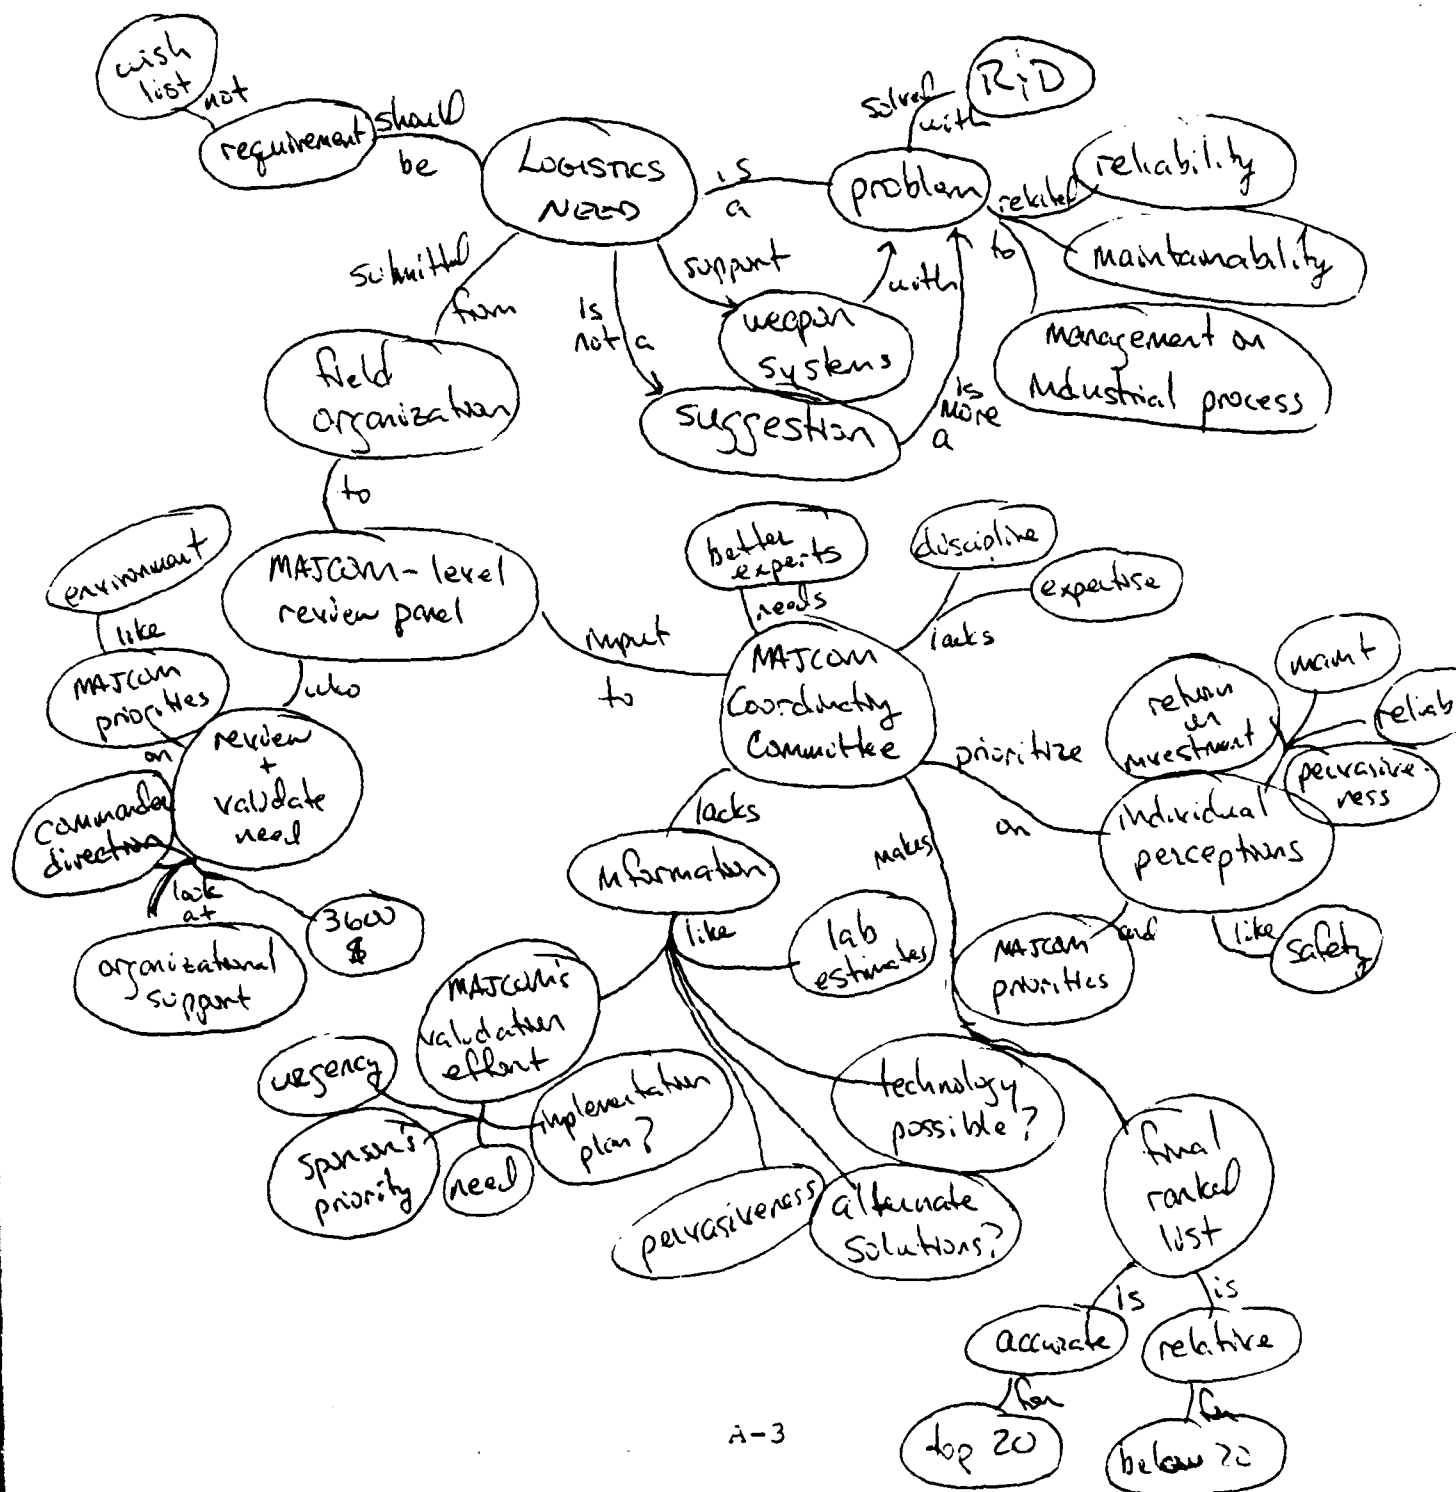 wish
list
not
requirement
should
be
LOGISTICS
NEED
is
a
problem
solved
with
R&D
related
to
reliability
maintainability
management or
industrial process
support
weapon
systems
with
is
not a
suggestion
is
more
a
submitted
from
field
organization
to
MAJCOM-level
review panel
who
review
+
validate
need
on
MAJCOM
priorities
like
environment
commander
direction
look
at
organizational
support
3600
$
input
to
MAJCOM
Coordinating
Committee
needs
better
experts
lacks
discipline
expertise
prioritize
on
individual
perceptions
return
on
investment
maint
reliab
pervasive-
ness
and
MAJCOM
priorities
like
safety
lacks
information
like
lab
estimates
MAJCOM's
validation
effort
urgency
sponsor's
priority
need
implementation
plan?
pervasiveness
alternate
solutions?
technology
possible?
makes
final
ranked
list
is
accurate
for
top 20
is
relative
for
below 20
A-3